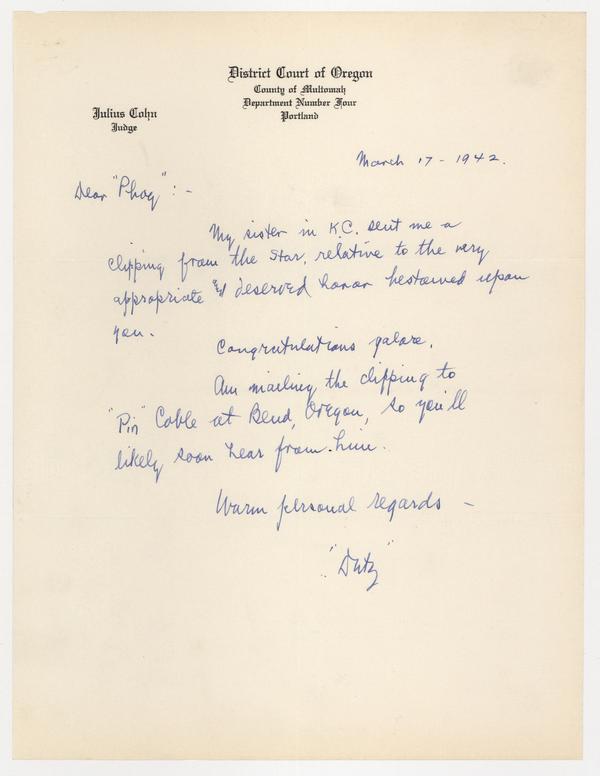 District Court of Oregon
County of Multomah
Department Number Four
Portland
Julius Cohn
Judge
March 17 - 1942.
Dear "Phog" :-
My sister in K.C. sent me a
clipping from the Star, relative to the very
appropriate & deserved honor bestowed upon
you.
Congratulations galore.
Am mailing the clipping to
"Pin" Cable at Bend, Oregon, so you'll
likely soon hear from him.
Warm personal regards -
"Dutz"